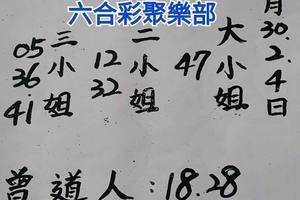 六合彩聚樂部
月30.2.4日
大小姐
47
二小姐
12
32
三小姐
05
36
41
曾道人:18.28